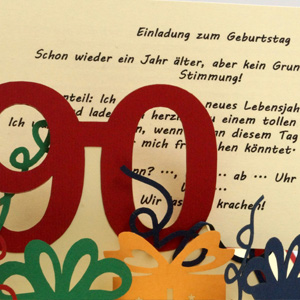 Einladung zum Geburtstag
Schon wieder ein Jahr älter, aber kein Grun
Stimmung!
90
nteil: Ich neues Lebensjah
Ich lade herzli zu einem tollen
wenn an diesem Tag
mich fr chen könntet.
??, ... ab ... Uhr
...
Wir las krachen!